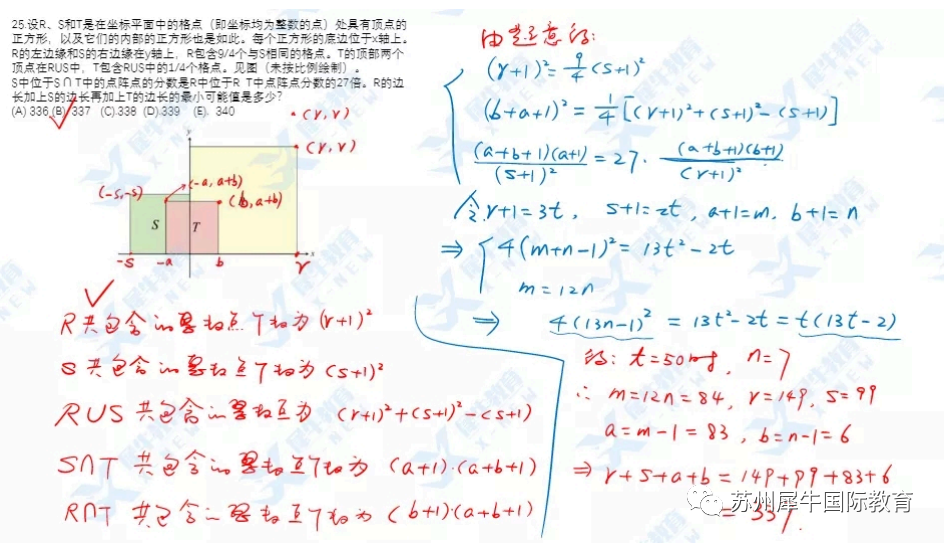 25.设R、S和T是在坐标平面中的格点（即坐标均为整数的点）处具有顶点的
正方形，以及它们的内部的正方形也是如此。每个正方形的底边位于x轴上。
R的左边缘和S的右边缘在y轴上，R包含9/4个与S相同的格点。T的顶部两个
顶点在RUS中，T包含RUS中的1/4个格点。见图（未按比例绘制）。
S中位于S∩T中的点阵点的分数是R中位于R T中点阵点分数的27倍。R的边
长加上S的边长再加上T的边长的最小可能值是多少？
(A) 336 (B) 337 (C).338 (D).339 (E). 340
(r, r)
y
(r, r)
(-s, s)
(-a, a+b)
(b, a+b)
S
T
x
-s
-a
b
r
R 共包含的格点个数为 (r+1)²
S 共包含的格点个数为 (s+1)²
RUS 共包含的格点为 (r+1)²+(s+1)²-(s+1)
S∩T 共包含的格点个数为 (a+1)·(a+b+1)
R∩T 共包含的格点个数为 (b+1)·(a+b+1)
由题意得:
(r+1)² = 9/4 (s+1)²
(b+a+1)² = 1/4 [(r+1)²+(s+1)²-(s+1)]
(a+b+1)(a+1)/(s+1)² = 27· (a+b+1)(b+1)/(r+1)²
令 r+1=3t, s+1=2t, a+1=m, b+1=n
⇒ 4(m+n-1)² = 13t²-2t
m=12n
⇒ 4(13n-1)² = 13t²-2t = t(13t-2)
得: t=50时, n=7
∴ m=12n=84, r=149, s=99
a=m-1=83, b=n-1=6
⇒ r+s+a+b=149+99+83+6
=337.
苏州犀牛国际教育
犀牛教育
X-NEW